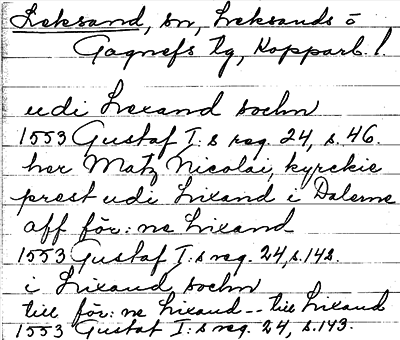 Leksand, sn, Leksands o
Gagnefs tg, Kopparb. l.
udi Lixand sochn
1553 Gustaf I:s reg. 24, s. 46.
her Matz Nicolai, kyrckie
prest udi Lixand i Dalerne
aff för: ne Lixand
1553 Gustaf I:s reg. 24, s. 148.
i Lixand sochn
till för: ne Lixand -- till Lixand
1553 Gustaf I:s reg. 24, s. 149.